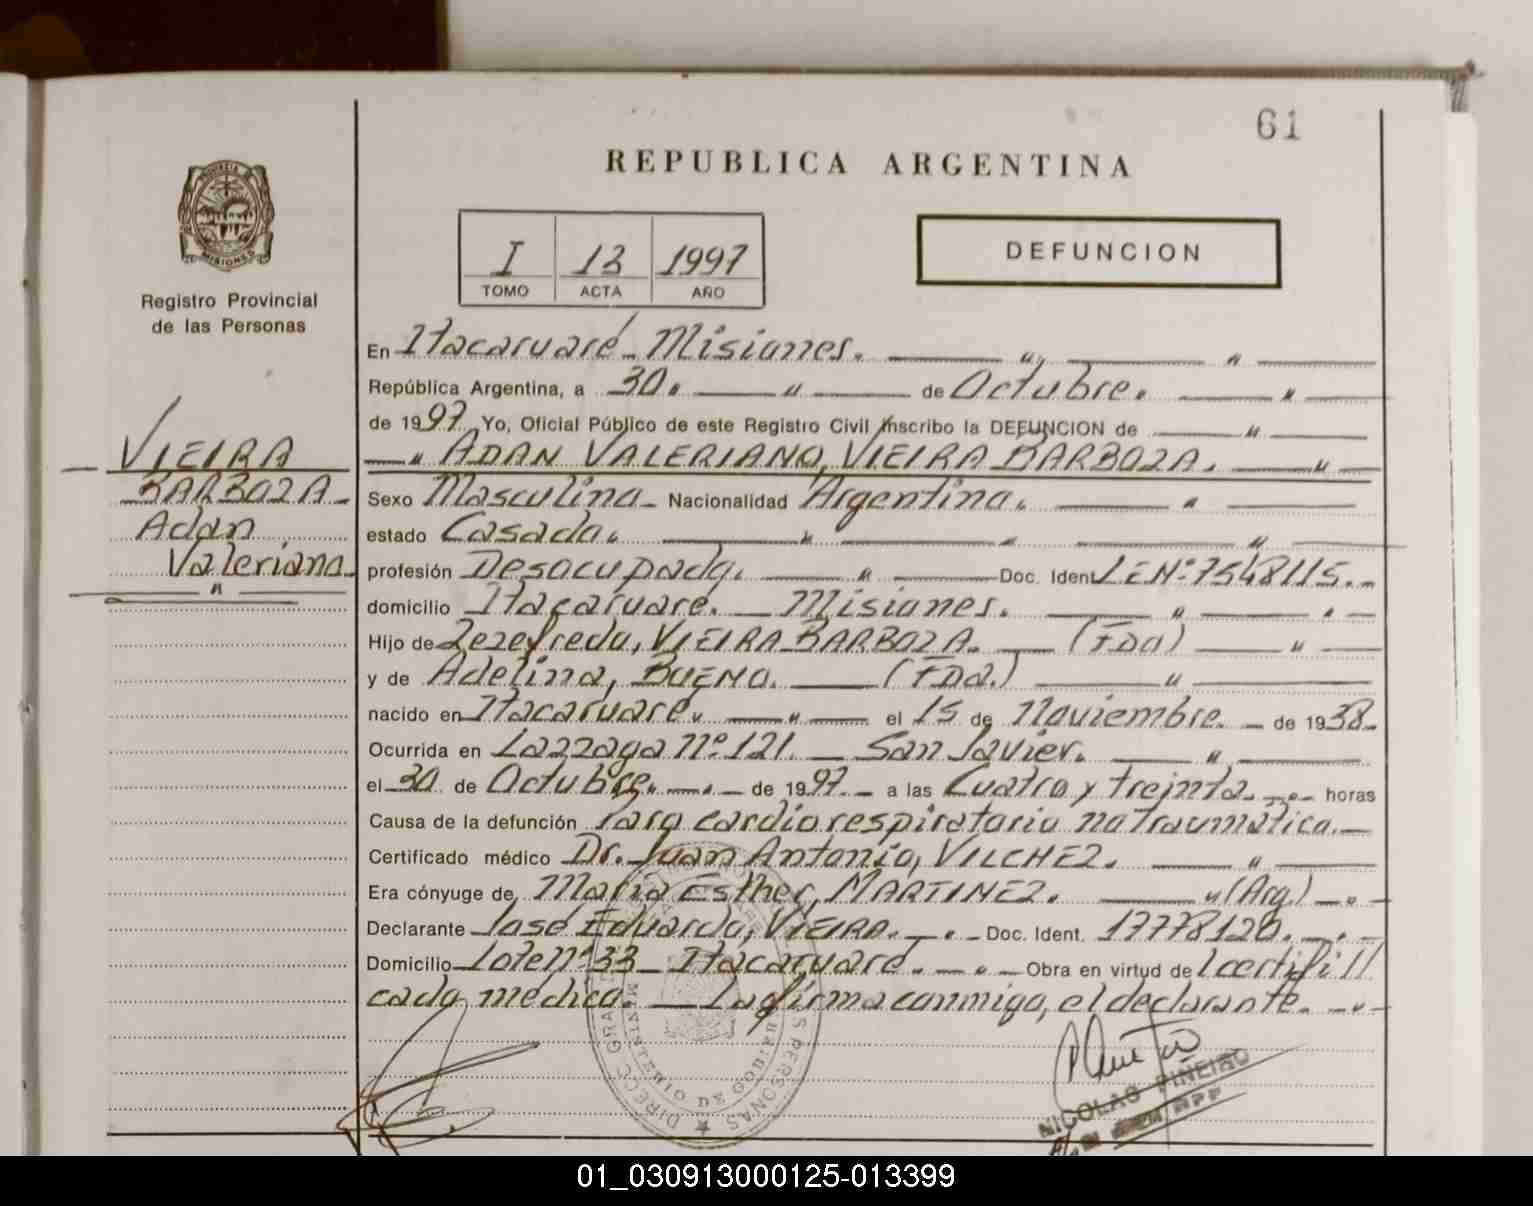 61
REPUBLICA ARGENTINA
PROVINCIA DE
MISIONES
Registro Provincial
de las Personas
I 13 1997
TOMO ACTA AÑO
DEFUNCION
VIEIRA
BARBOZA
Adan
Valeriano
En Itacaruaré - Misiones.
República Argentina, a 30. de Octubre.
de 1997 Yo, Oficial Público de este Registro Civil Inscribo la DEFUNCION de
ADAN VALERIANO, VIEIRA BARBOZA.
Sexo Masculino - Nacionalidad Argentina.
estado Casado.
profesión Desocupado. Doc. Ident LE Nº 7548115.
domicilio Itacaruaré. Misiones.
Hijo de Zezefredo, VIEIRA BARBOZA. (FDO)
y de Adelina, BUENO. (FDA.)
nacido en Itacaruaré. el 15 de Noviembre. de 1938.
Ocurrida en Lazzaga nº 121. San Javier.
el 30 de Octubre. de 1997. a las Cuatro y treinta. horas
Causa de la defunción Paro cardiorespiratorio no traumático.
Certificado médico Dr. Juan Antonio, VILCHEZ.
Era cónyuge de María Esther, MARTINEZ. (Arg.)
Declarante José Eduardo, VIEIRA. Doc. Ident. 17778120.
Domicilio Lote nº 33 - Itacaruaré. Obra en virtud de certifi
cado médico. La firma conmigo, el declarante.
MINISTERIO DE GOBIERNO
NICOLAS PIÑEIRO
01_030913000125-013399